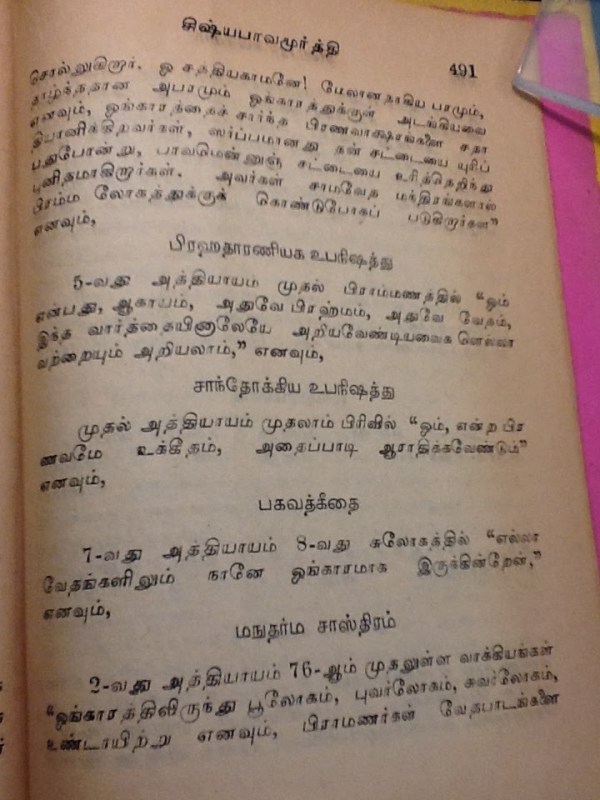 சிஷ்யபாவமூர்த்தி
491
சொல்லுகிறார். ஓ சத்தியகாமனே! மேலானதாகிய பரமும்,
தாழ்ந்ததான அபரமும் ஓங்காரத்துக்குள் அடங்கியவை
எனவும், ஓங்காரத்தைச் சார்ந்த பிரணவாக்ஷரங்களை சதா
தியானிக்கிறவர்கள், ஸர்ப்பமானது தன் சட்டையை யுரிப்
பதுபோன்று, பாவமென்னுஞ் சட்டையை உரித்தெறிந்து
புனிதமாகிறார்கள். அவர்கள் சாமவேத மந்திரங்களால்
பிரம்ம லோகத்துக்குக் கொண்டுபோகப் படுகிறார்கள”
எனவும்,
பிரஹதாரணியக உபநிஷத்து
5-வது அத்தியாயம் முதல் பிராம்மணத்தில் “ஓம்
என்பது, ஆகாயம், அதுவே பிரஹ்மம், அதுவே வேதம்,
இந்த வார்த்தையினாலேயே அறியவேண்டியவைக ளெல்லா
வற்றையும் அறியலாம்,” எனவும்,
சாந்தோக்கிய உபநிஷத்து
முதல் அத்தியாயம் முதலாம் பிரிவில் “ஓம், என்ற பிர
ணவமே உக்கீதம், அதைப்பாடி ஆராதிக்கவேண்டும்”
எனவும்,
பகவத்கீதை
7-வது அத்தியாயம் 8-வது சுலோகத்தில் “எல்லா
வேதங்களிலும் நானே ஓங்காரமாக இருக்கின்றேன்,”
எனவும்,
மநுதர்ம சாஸ்திரம்
2-வது அத்தியாயம் 76-ஆம் முதலுள்ள வாக்கியங்கள்
“ஓங்காரத்திலிருந்து பூலோகம், புவர்லோகம், சுவர்லோகம்,
உண்டாயிற்று எனவும், பிராமணர்கள் வேதபாடங்களை